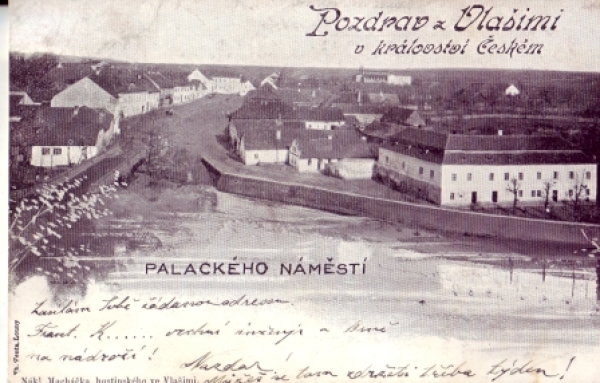 Pozdrav z Vlašimi
v království Českém
PALACKÉHO NÁMĚSTÍ
Zasílám Tobě žádanou adresu.
Frant. K...... vrchní inženýr a
na nádraží!
Nazdar!
Můžeš se tam zdržeti třeba týden!
Nákl. Macháčka, hostinského ve Vlašimi.